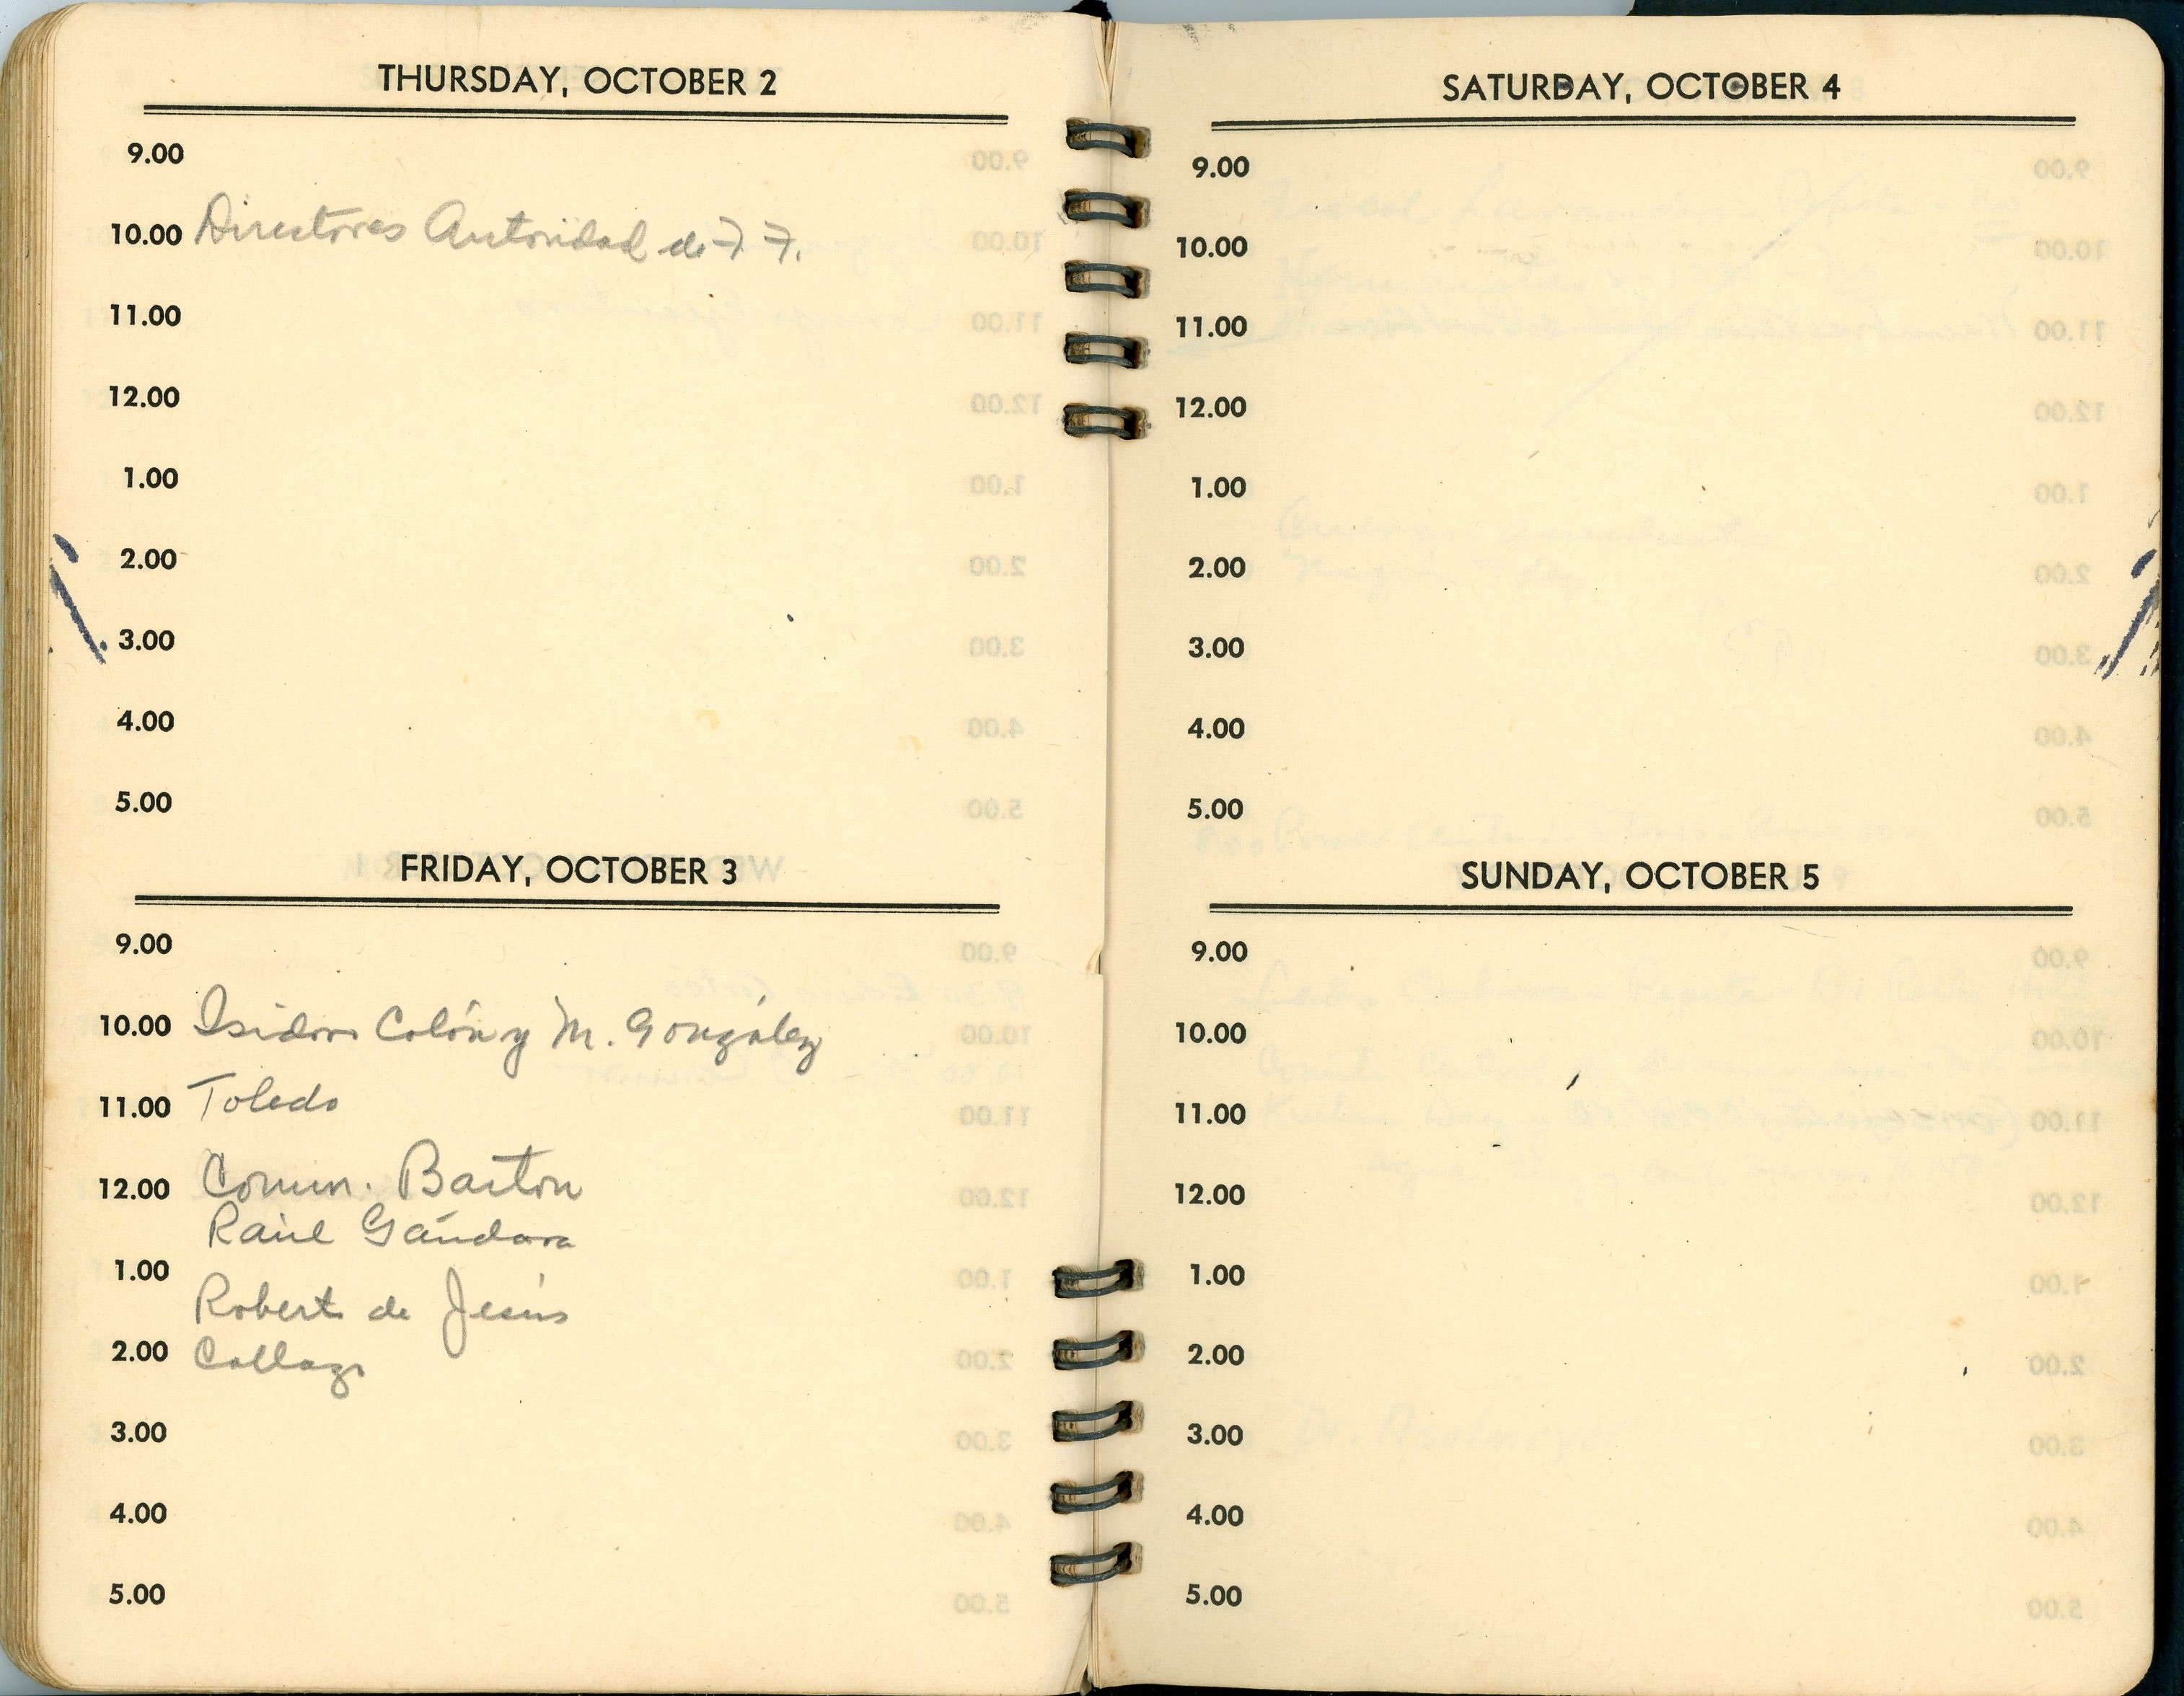 THURSDAY, OCTOBER 2
9.00
10.00 Directores Autoridad de F. F.
11.00
12.00
1.00
2.00
3.00
4.00
5.00
FRIDAY, OCTOBER 3
9.00
10.00 Isidoro Colón y M. González
11.00 Toledo
12.00 Comm. Barton
Raúl Gándara
1.00
Robert de Jesús
2.00 Collazo
3.00
4.00
5.00
SATURDAY, OCTOBER 4
9.00
10.00
11.00
12.00
1.00
2.00
3.00
4.00
5.00
SUNDAY, OCTOBER 5
9.00
10.00
11.00
12.00
1.00
2.00
3.00
4.00
5.00